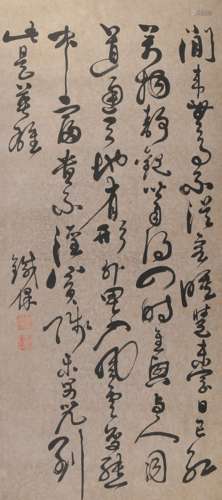 閒來無事不從容睡覺東窗日已紅
萬物靜觀皆自得四時佳興與人同
道通天地有形外思入風雲變態
中富貴不淫貧賤樂男兒到
此是豪雄
鐵保